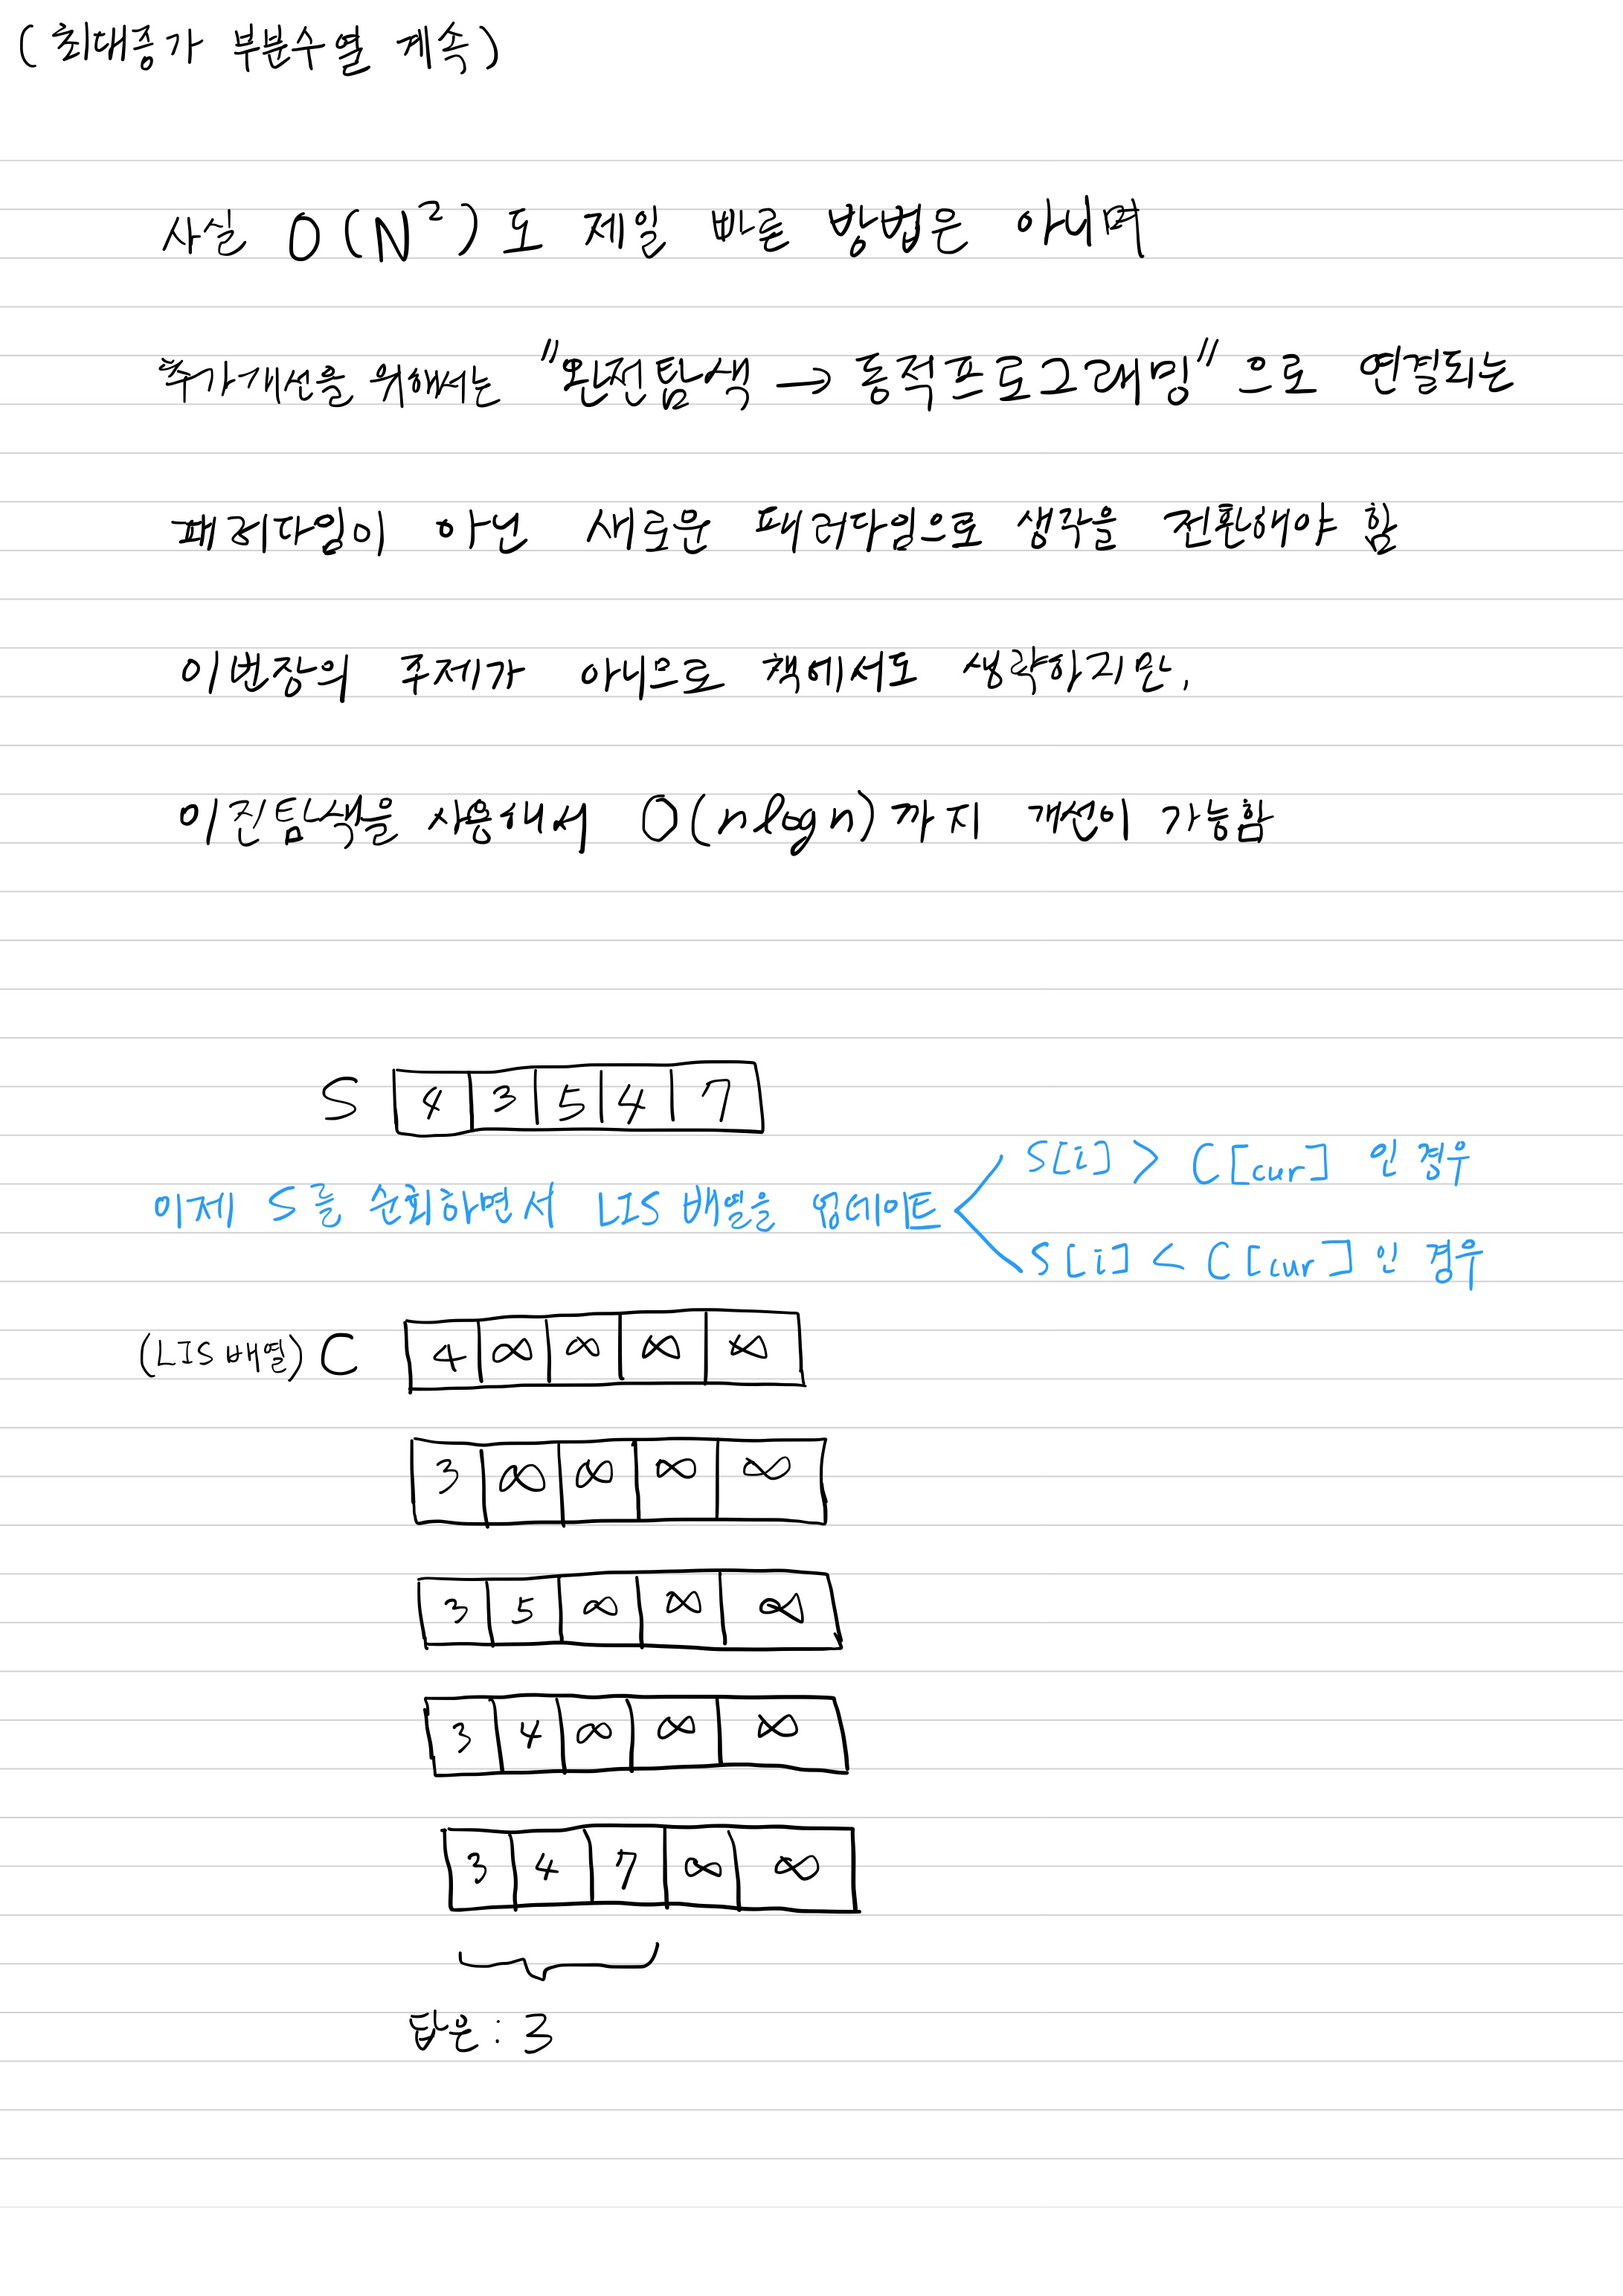 (최대증가 부분수열 계속)
사실 O(N²)도 제일 빠른 방법은 아니며
추가개선을 위해서는 "완전탐색 → 동적프로그래밍"으로 연결되는
패러다임이 아닌 새로운 패러다임으로 생각을 전환해야 함
이번장의 주제가 아니므로 책에서도 생략하지만,
이진탐색을 사용해서 O(nlogn)까지 개선이 가능함
S 4 3 5 4 7
이제 S를 순회하면서 LIS 배열을 업데이트
S[i] > C[cur] 인 경우
S[i] < C[cur] 인 경우
(LIS 배열) C 4 ∞ ∞ ∞ ∞
3 ∞ ∞ ∞ ∞
3 5 ∞ ∞ ∞
3 4 ∞ ∞ ∞
3 4 7 ∞ ∞
답은 : 3